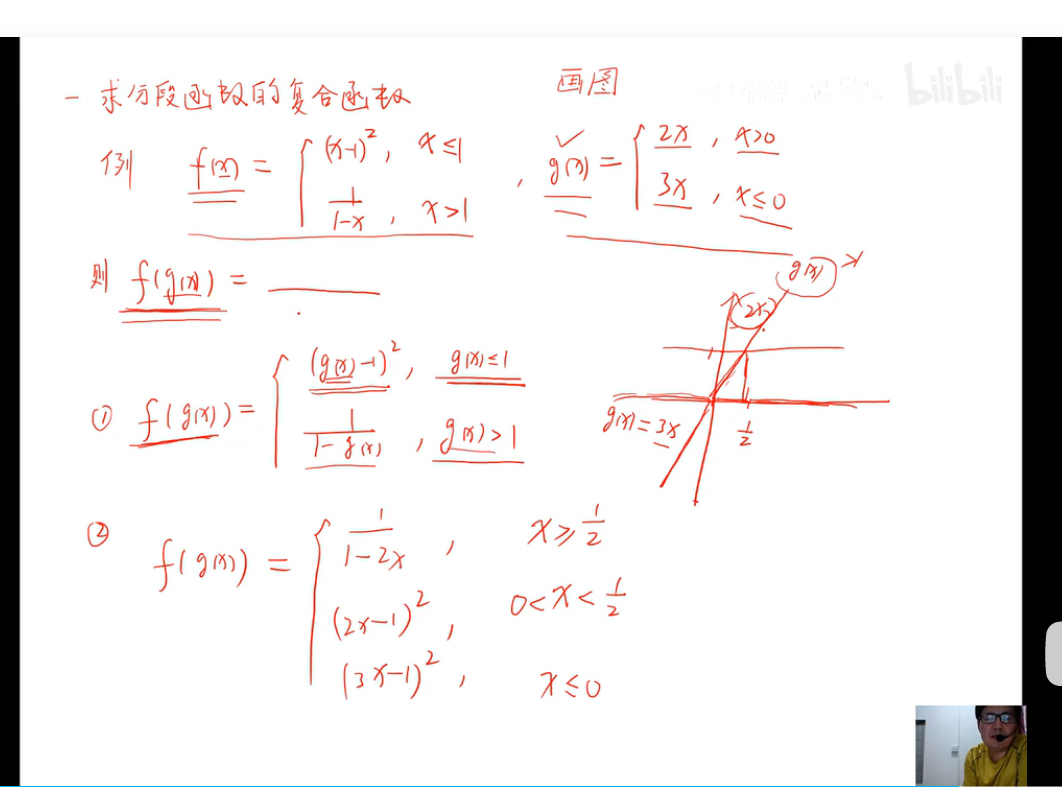 一 求分段函数的复合函数
画图
bilibili
例 f(x) = { (x-1)², x≤1
1/(1-x), x>1
, g(x) = { 2x, x>0
3x, x≤0
则 f(g(x)) = ______
g(x)
2x
① f(g(x)) = { (g(x)-1)², g(x)≤1
1/(1-g(x)), g(x)>1
g(x)=3x
1/2
② f(g(x)) = { 1/(1-2x), x≥1/2
(2x-1)², 0<x<1/2
(3x-1)², x≤0